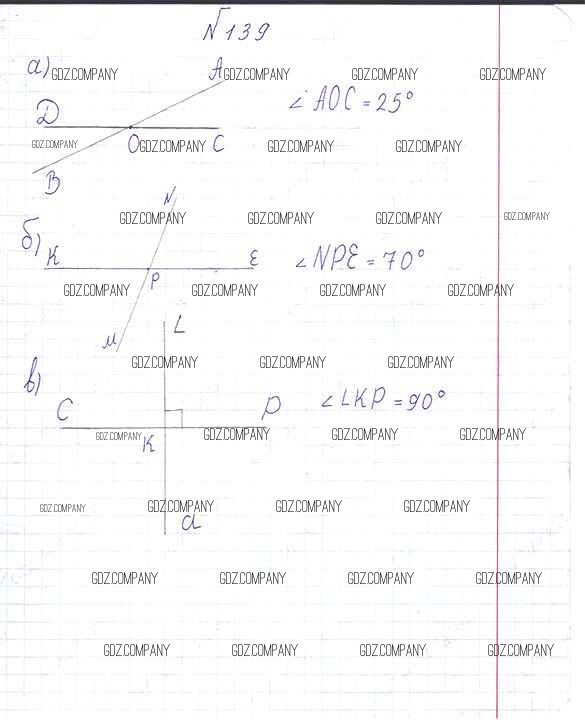 N 139
а) GDZ.COMPANY A GDZ.COMPANY GDZ.COMPANY GDZ.COMPANY
D ∠AOC = 25°
GDZ.COMPANY O GDZ.COMPANY C GDZ.COMPANY GDZ.COMPANY
B
N
GDZ.COMPANY GDZ.COMPANY GDZ.COMPANY GDZ.COMPANY
б) K E ∠NPE = 70°
P
GDZ.COMPANY GDZ.COMPANY GDZ.COMPANY GDZ.COMPANY
L
M
GDZ.COMPANY GDZ.COMPANY GDZ.COMPANY
в)
C P ∠LKP = 90°
GDZ.COMPANY K GDZ.COMPANY GDZ.COMPANY GDZ.COMPANY
GDZ.COMPANY GDZ.COMPANY GDZ.COMPANY GDZ.COMPANY
d
GDZ.COMPANY GDZ.COMPANY GDZ.COMPANY GDZ.COMPANY
GDZ.COMPANY GDZ.COMPANY GDZ.COMPANY GDZ.COMPANY